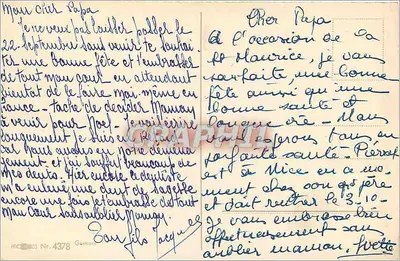 Mon Cher Papa
Je ne veux pas laisser passer le
22 septembre sans venir te souhai
ter une bonne fête et t'embrasser
de tout mon cœur en attendant
bientôt de le faire moi-même en
France - tache de décider Maman
à venir pour Noël
longuement je suis
car nous avons eu notre
gement - et j'ai souffert beaucoup de
mes dents. Hier encore le dentiste
m'a enlevé une dent de sagesse
encore une fois je t'embrasse de tout
mon Cœur sans oublier Maman.
Ton fils Jacques
Nr. 4378
Cher Papa
A l'occasion de la
St Maurice, je vous
souhaite, une bonne
fête ainsi que une
bonne santé et
longue vie - Nous
sommes tous en
parfaite santé - Pierrot
est à Nice en ce mo
ment chez son père
et doit rentrer le 3-10-
Je vous embrasse bien
affectueusement sans
oublier maman. Yvette
CARTOPHIL